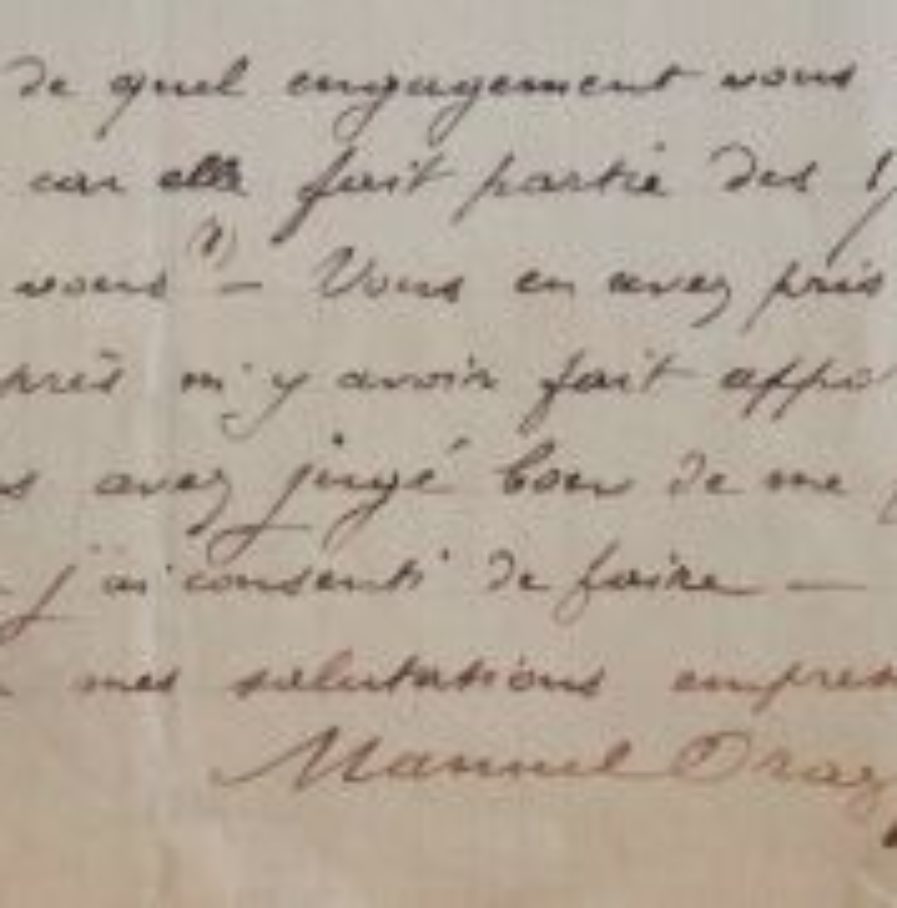 de quel engagement vous
car elle fait partie des
vous (1) — Vous en avez pris
près m'y avoir fait
avez jugé bon de me
j'ai consenti de faire —
mes salutations empres
Manuel Oraz